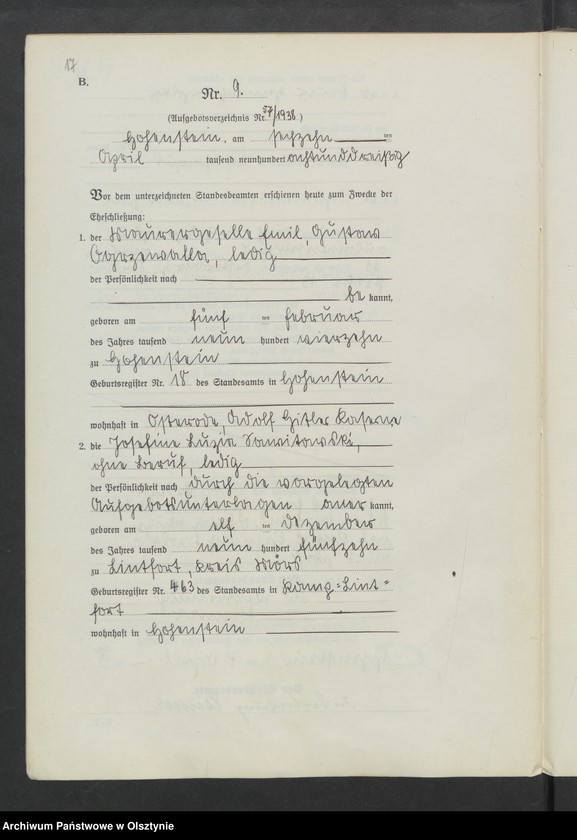 17
B.
Nr. 9.
(Aufgebotsverzeichnis Nr. 57/1938.)
Hohenstein, am sechzehn ten
April tausend neunhundert achtunddreißig
Vor dem unterzeichneten Standesbeamten erschienen heute zum Zwecke der
Eheschließung:
1. der Maurergeselle Emil, Gustav
ledig
der Persönlichkeit nach
be kannt,
geboren am fünf ten Februar
des Jahres tausend neun hundert vierzehn
zu Hohenstein
Geburtsregister Nr. 18 des Standesamts in Hohenstein
wohnhaft in Osterode, Adolf Hitler Kaserne
2. die Josefine Luzia Sawitowski,
ohne Beruf, ledig
der Persönlichkeit nach durch die vorgelegten
Aufgebotsunterlagen aner kannt,
geboren am elf ten Dezember
des Jahres tausend neun hundert fünfzehn
zu Lintfort, Kreis Mörs
Geburtsregister Nr. 463 des Standesamts in Kamp=Lint=
fort
wohnhaft in Hohenstein
Archiwum Państwowe w Olsztynie